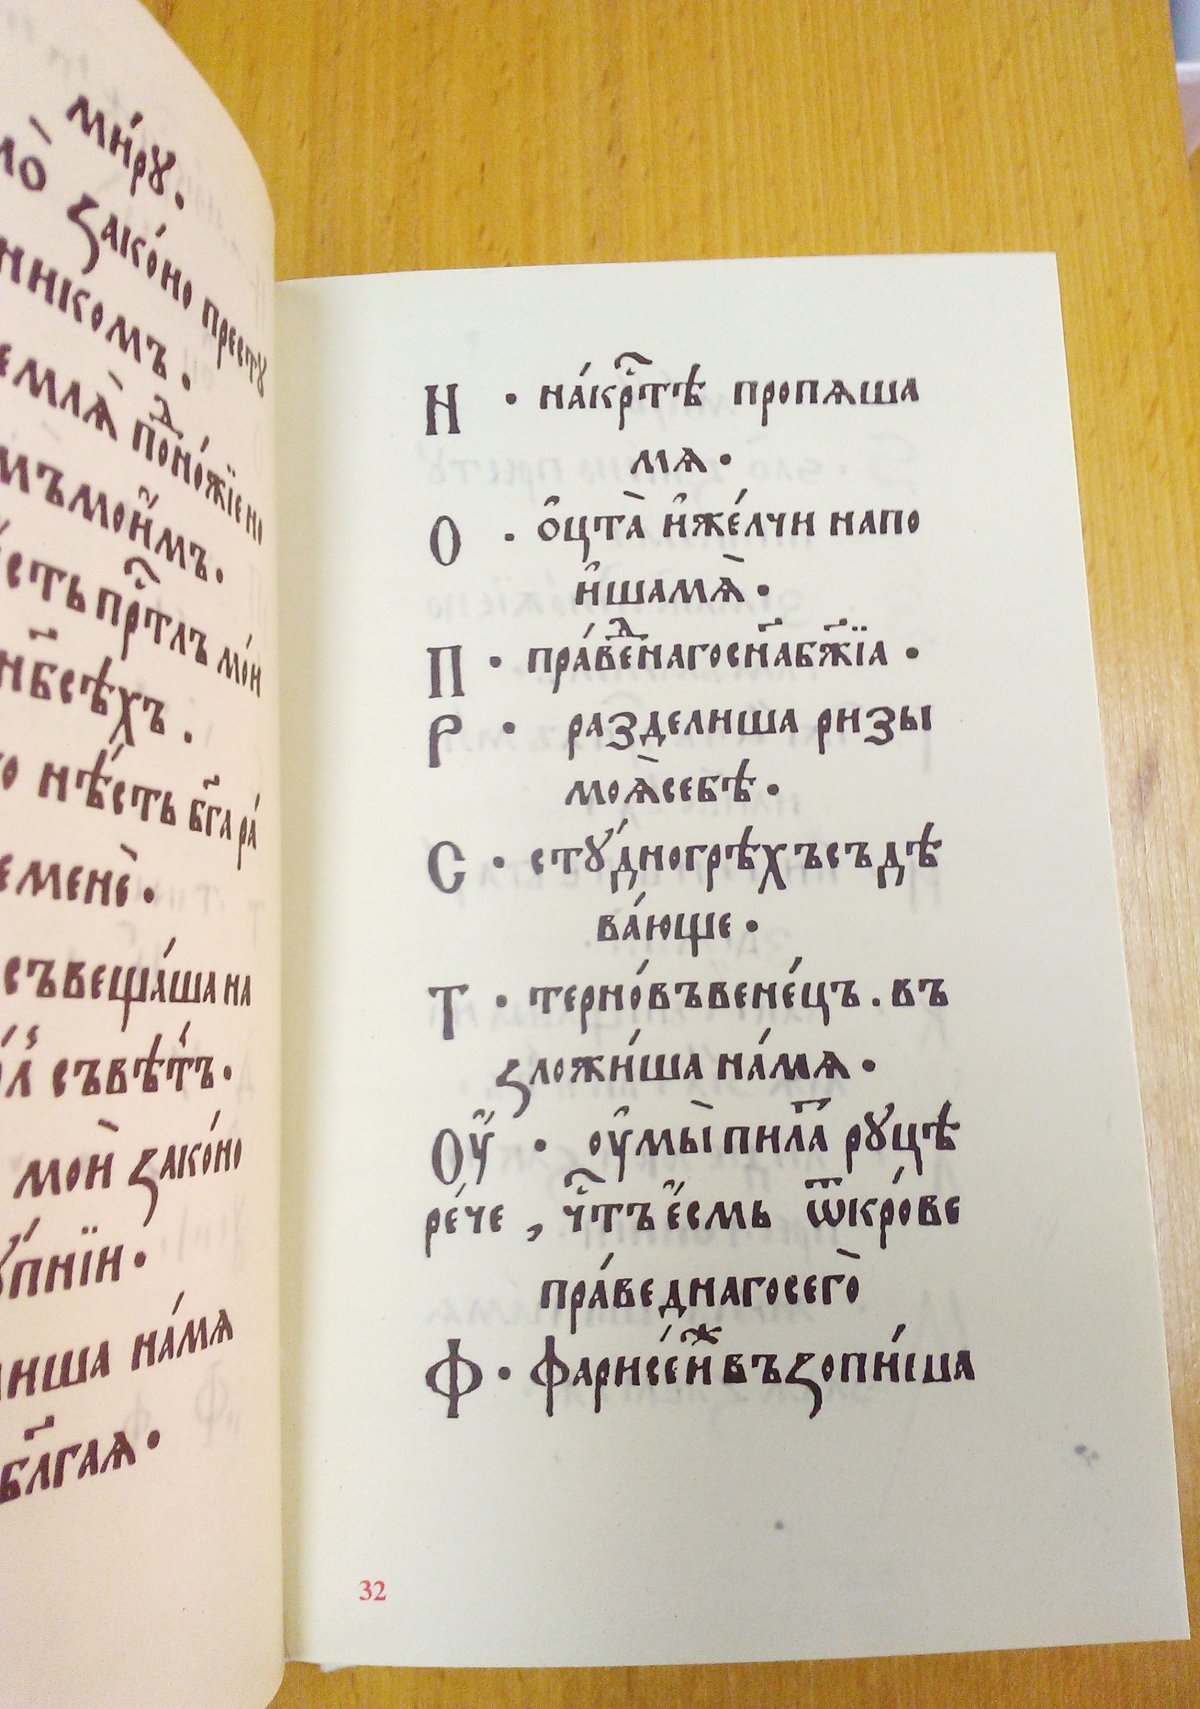 ми́рꙋ.
ло̀ ꙁако́но престꙋ
никомъ.
емлѧ̀ поⷣно́жїе но
мъмои҆мъ.
сть прⷭ҇тлъ мо́и
нбсѣхъ.
нѣ́сть бг҃а ра́
еменѐ.
съвеща́ша на
съвѣ́тъ.
мои̇̀ ꙁако́но
пнїи.
ниша на́мѧ
бл҃гаѧ.
Н · на́крⷭ҇тѣ пропѧша
мѧ ·
О · о҆цта̀ и҆же́лчи напо
и҆шамѧ̀ ·
П · пра́веⷣнагосн҃абж҃їѧ ·
Р · разделиша ризы
моѧ̀себѣ ·
С · стꙋ́дногрѣхъсъдѣ
ва́юще ·
Т · терно́въвене́цъ. въ
ꙁложи́ша на́мѧ ·
Оу҆ · оу҆мы̀ пила҃ рꙋцѣ
ре́че , чⷭ҇тъ е҆́смь ѿкро́ве
пра́веднагосего̀
Ф · фарисе́иⷤвъꙁопи́ша
32